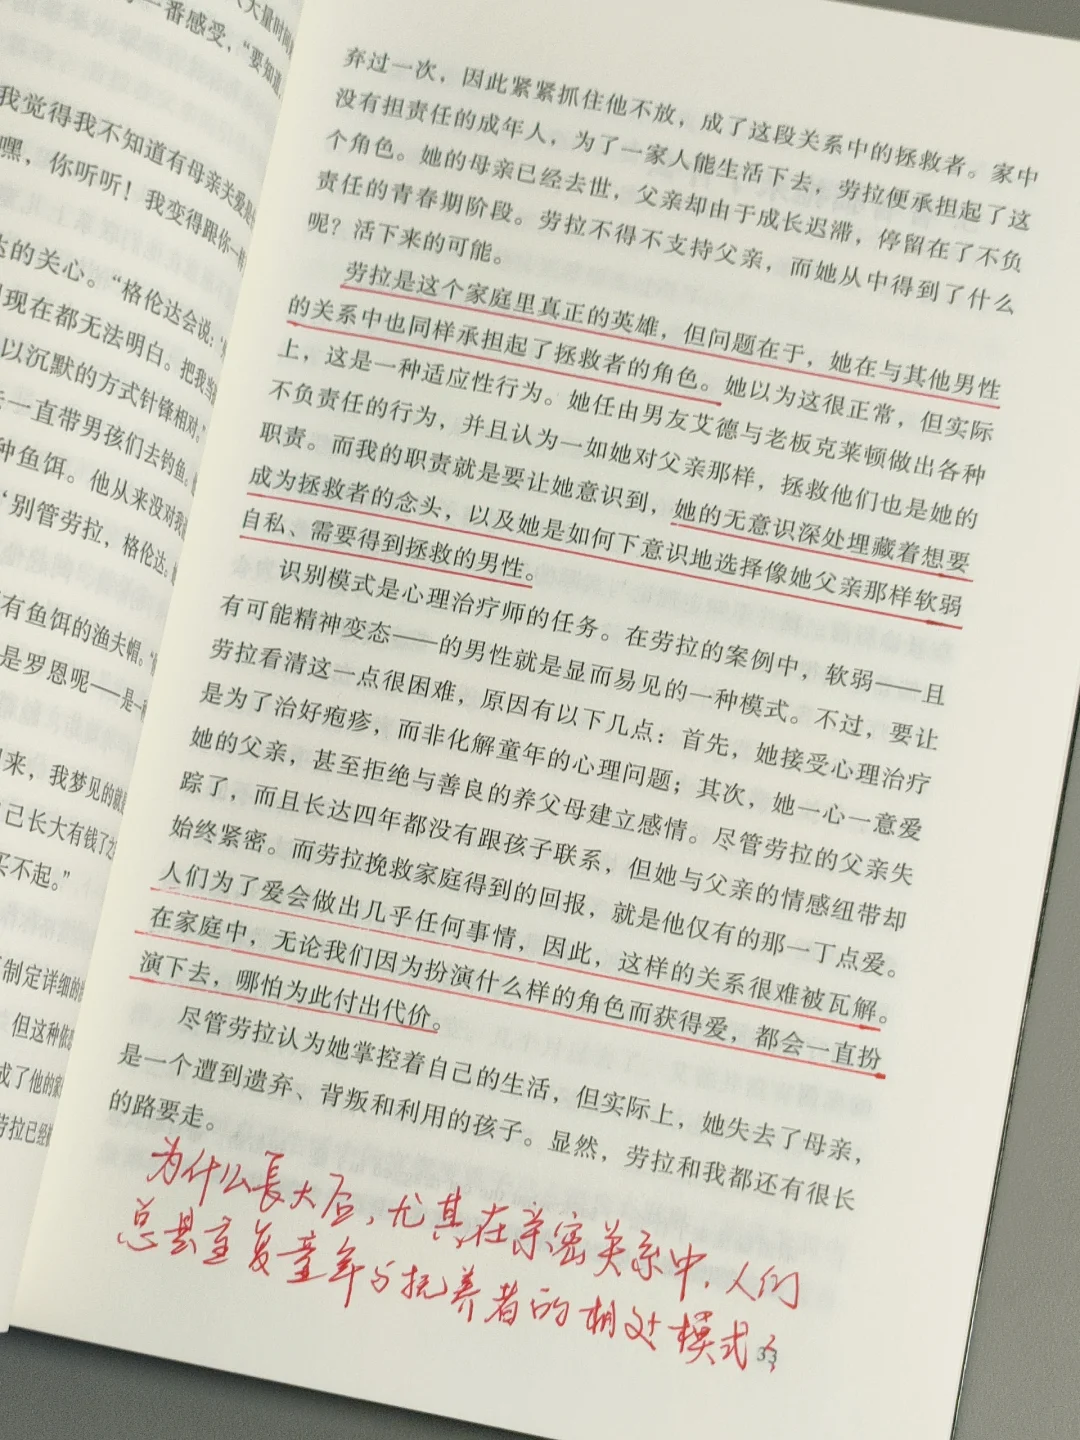 大量时间
一番感受，“要知道
我觉得我不知道有母亲关爱是
嘿，你听听！我变得跟你一样
达的关心。“格伦达会说：
现在都无法明白。把我当
以沉默的方式针锋相对。”
一直带男孩们去钓鱼。
种鱼饵。他从来没对我
‘别管劳拉，格伦达。
有鱼饵的渔夫帽。”
是罗恩呢——是一种
来，我梦见的就是
己长大有钱了之
买不起。”
制定详细的
但这种依恋
成了他的家
劳拉已经
弃过一次，因此紧紧抓住他不放，成了这段关系中的拯救者。家中
没有担责任的成年人，为了一家人能生活下去，劳拉便承担起了这
个角色。她的母亲已经去世，父亲却由于成长迟滞，停留在了不负
责任的青春期阶段。劳拉不得不支持父亲，而她从中得到了什么
呢？活下来的可能。
劳拉是这个家庭里真正的英雄，但问题在于，她在与其他男性
的关系中也同样承担起了拯救者的角色。她以为这很正常，但实际
上，这是一种适应性行为。她任由男友艾德与老板克莱顿做出各种
不负责任的行为，并且认为一如她对父亲那样，拯救他们也是她的
职责。而我的职责就是要让她意识到，她的无意识深处埋藏着想要
成为拯救者的念头，以及她是如何下意识地选择像她父亲那样软弱
自私、需要得到拯救的男性。
识别模式是心理治疗师的任务。在劳拉的案例中，软弱——且
有可能精神变态——的男性就是显而易见的一种模式。不过，要让
劳拉看清这一点很困难，原因有以下几点：首先，她接受心理治疗
是为了治好疱疹，而非化解童年的心理问题；其次，她一心一意爱
她的父亲，甚至拒绝与善良的养父母建立感情。尽管劳拉的父亲失
踪了，而且长达四年都没有跟孩子联系，但她与父亲的情感纽带却
始终紧密。而劳拉挽救家庭得到的回报，就是他仅有的那一丁点爱。
人们为了爱会做出几乎任何事情，因此，这样的关系很难被瓦解。
在家庭中，无论我们因为扮演什么样的角色而获得爱，都会一直扮
演下去，哪怕为此付出代价。
尽管劳拉认为她掌控着自己的生活，但实际上，她失去了母亲，
是一个遭到遗弃、背叛和利用的孩子。显然，劳拉和我都还有很长
的路要走。
为什么長大后，尤其在亲密关系中，人们
总是重复童年与抚养者的相处模式？
33